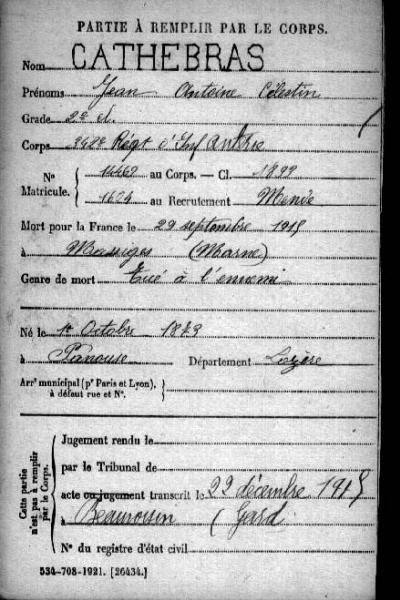 PARTIE À REMPLIR PAR LE CORPS.
Nom CATHEBRAS
Prénoms Jean Antoine Célestin
Grade 2e cl.
Corps 342e Régt d'Inf antrie
N° Matricule. { 14462 au Corps. — Cl. 1899
1604 au Recrutement Mende
Mort pour la France le 29 septembre 1915
à Massiges (Marne)
Genre de mort Tué à l'ennemi
Né le 1er Octobre 1879
à Panouse Département Lozère
Arrt municipal (pr Paris et Lyon), à défaut rue et N°.
Cette partie n'est pas à remplir par le Corps.
Jugement rendu le
par le Tribunal de
acte ou jugement transcrit le 22 décembre 1915
à Beauvoisin (Gard
N° du registre d'état civil
534-708-1921. [26434.]